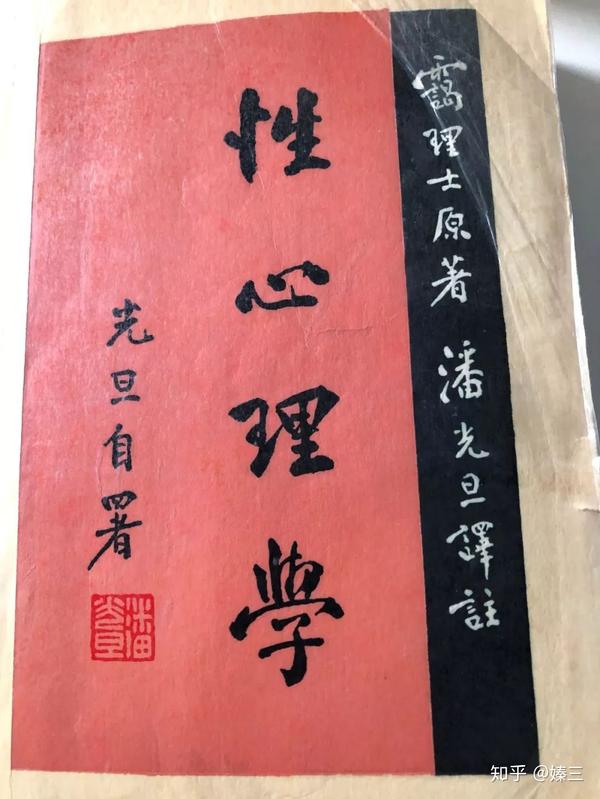 靄理士原著 潘光旦譯註
性心理學
光旦自署
潘光旦
知乎 @嫀三